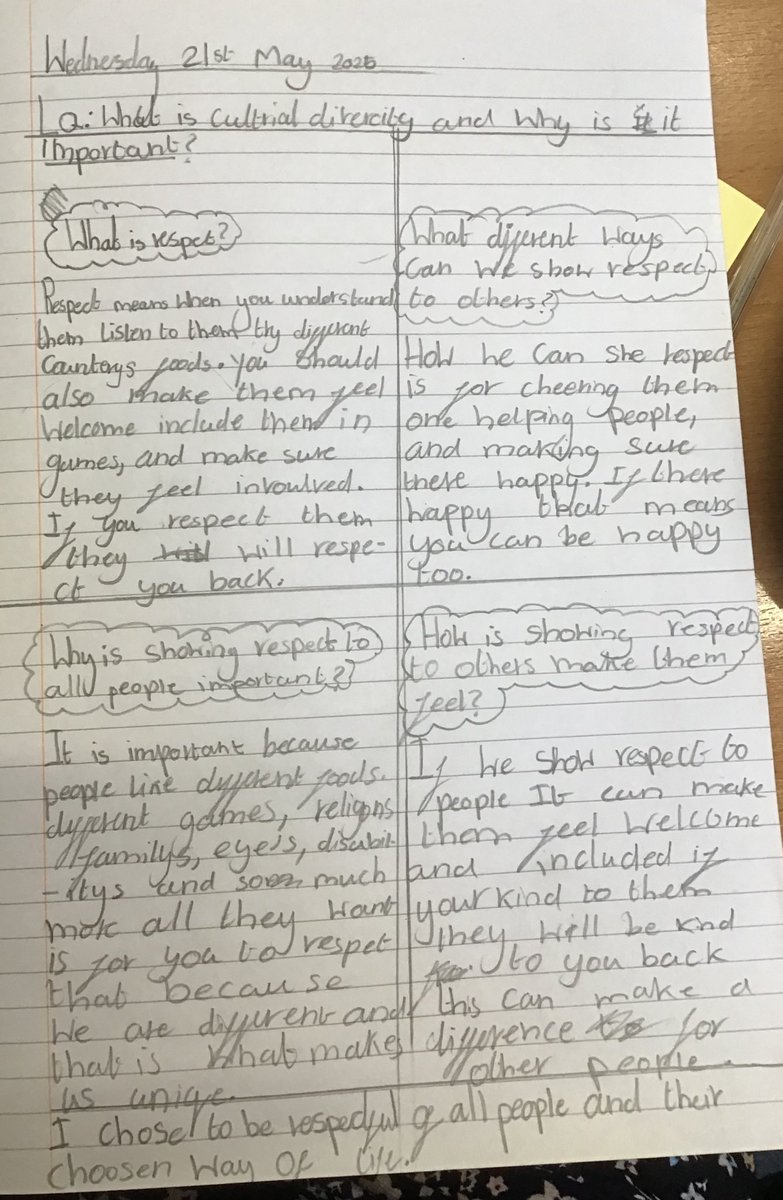 Wednesday 21st May 2025
LQ: What is cultrial divercity and why is it
important?
What is respet?
Respect means when you understand
them listen to them try different
Counterys foods. You should
also make them feel
welcome include them in
games, and make sure
they feel invoulved.
If you respect them
they will respe-
ct you back.
What different ways
Can we show respect
to others?
How he Can she respect
is for cheering them
one helping people,
and making sure
there happy. If there
happy that means
you can be happy
too.
Why is showing respect to
all people important?
It is important because
people like dyfferent foods.
dyfferent games, religons
familys, eye's, disabilit
-itys and so much
more all they want
is for you to respet
that because
We are different and
that is what makes
us uniqe.
How is showing respect
to others make them
feel?
If we show respect to
people It can make
them feel welcome
and included if
your kind to them
they will be kind
to you back
this can make a
difference for
other people.
I chose to be respectful of all people and their
choosen way of life.